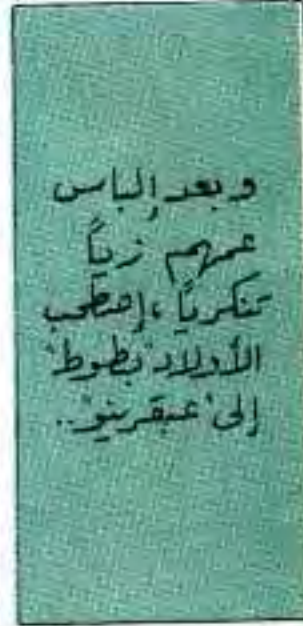 وبعد إلباس
عمهم زياً
تنكرياً ، إصطحب
الأولاد "بطوط"
إلى "عبقرينو"..